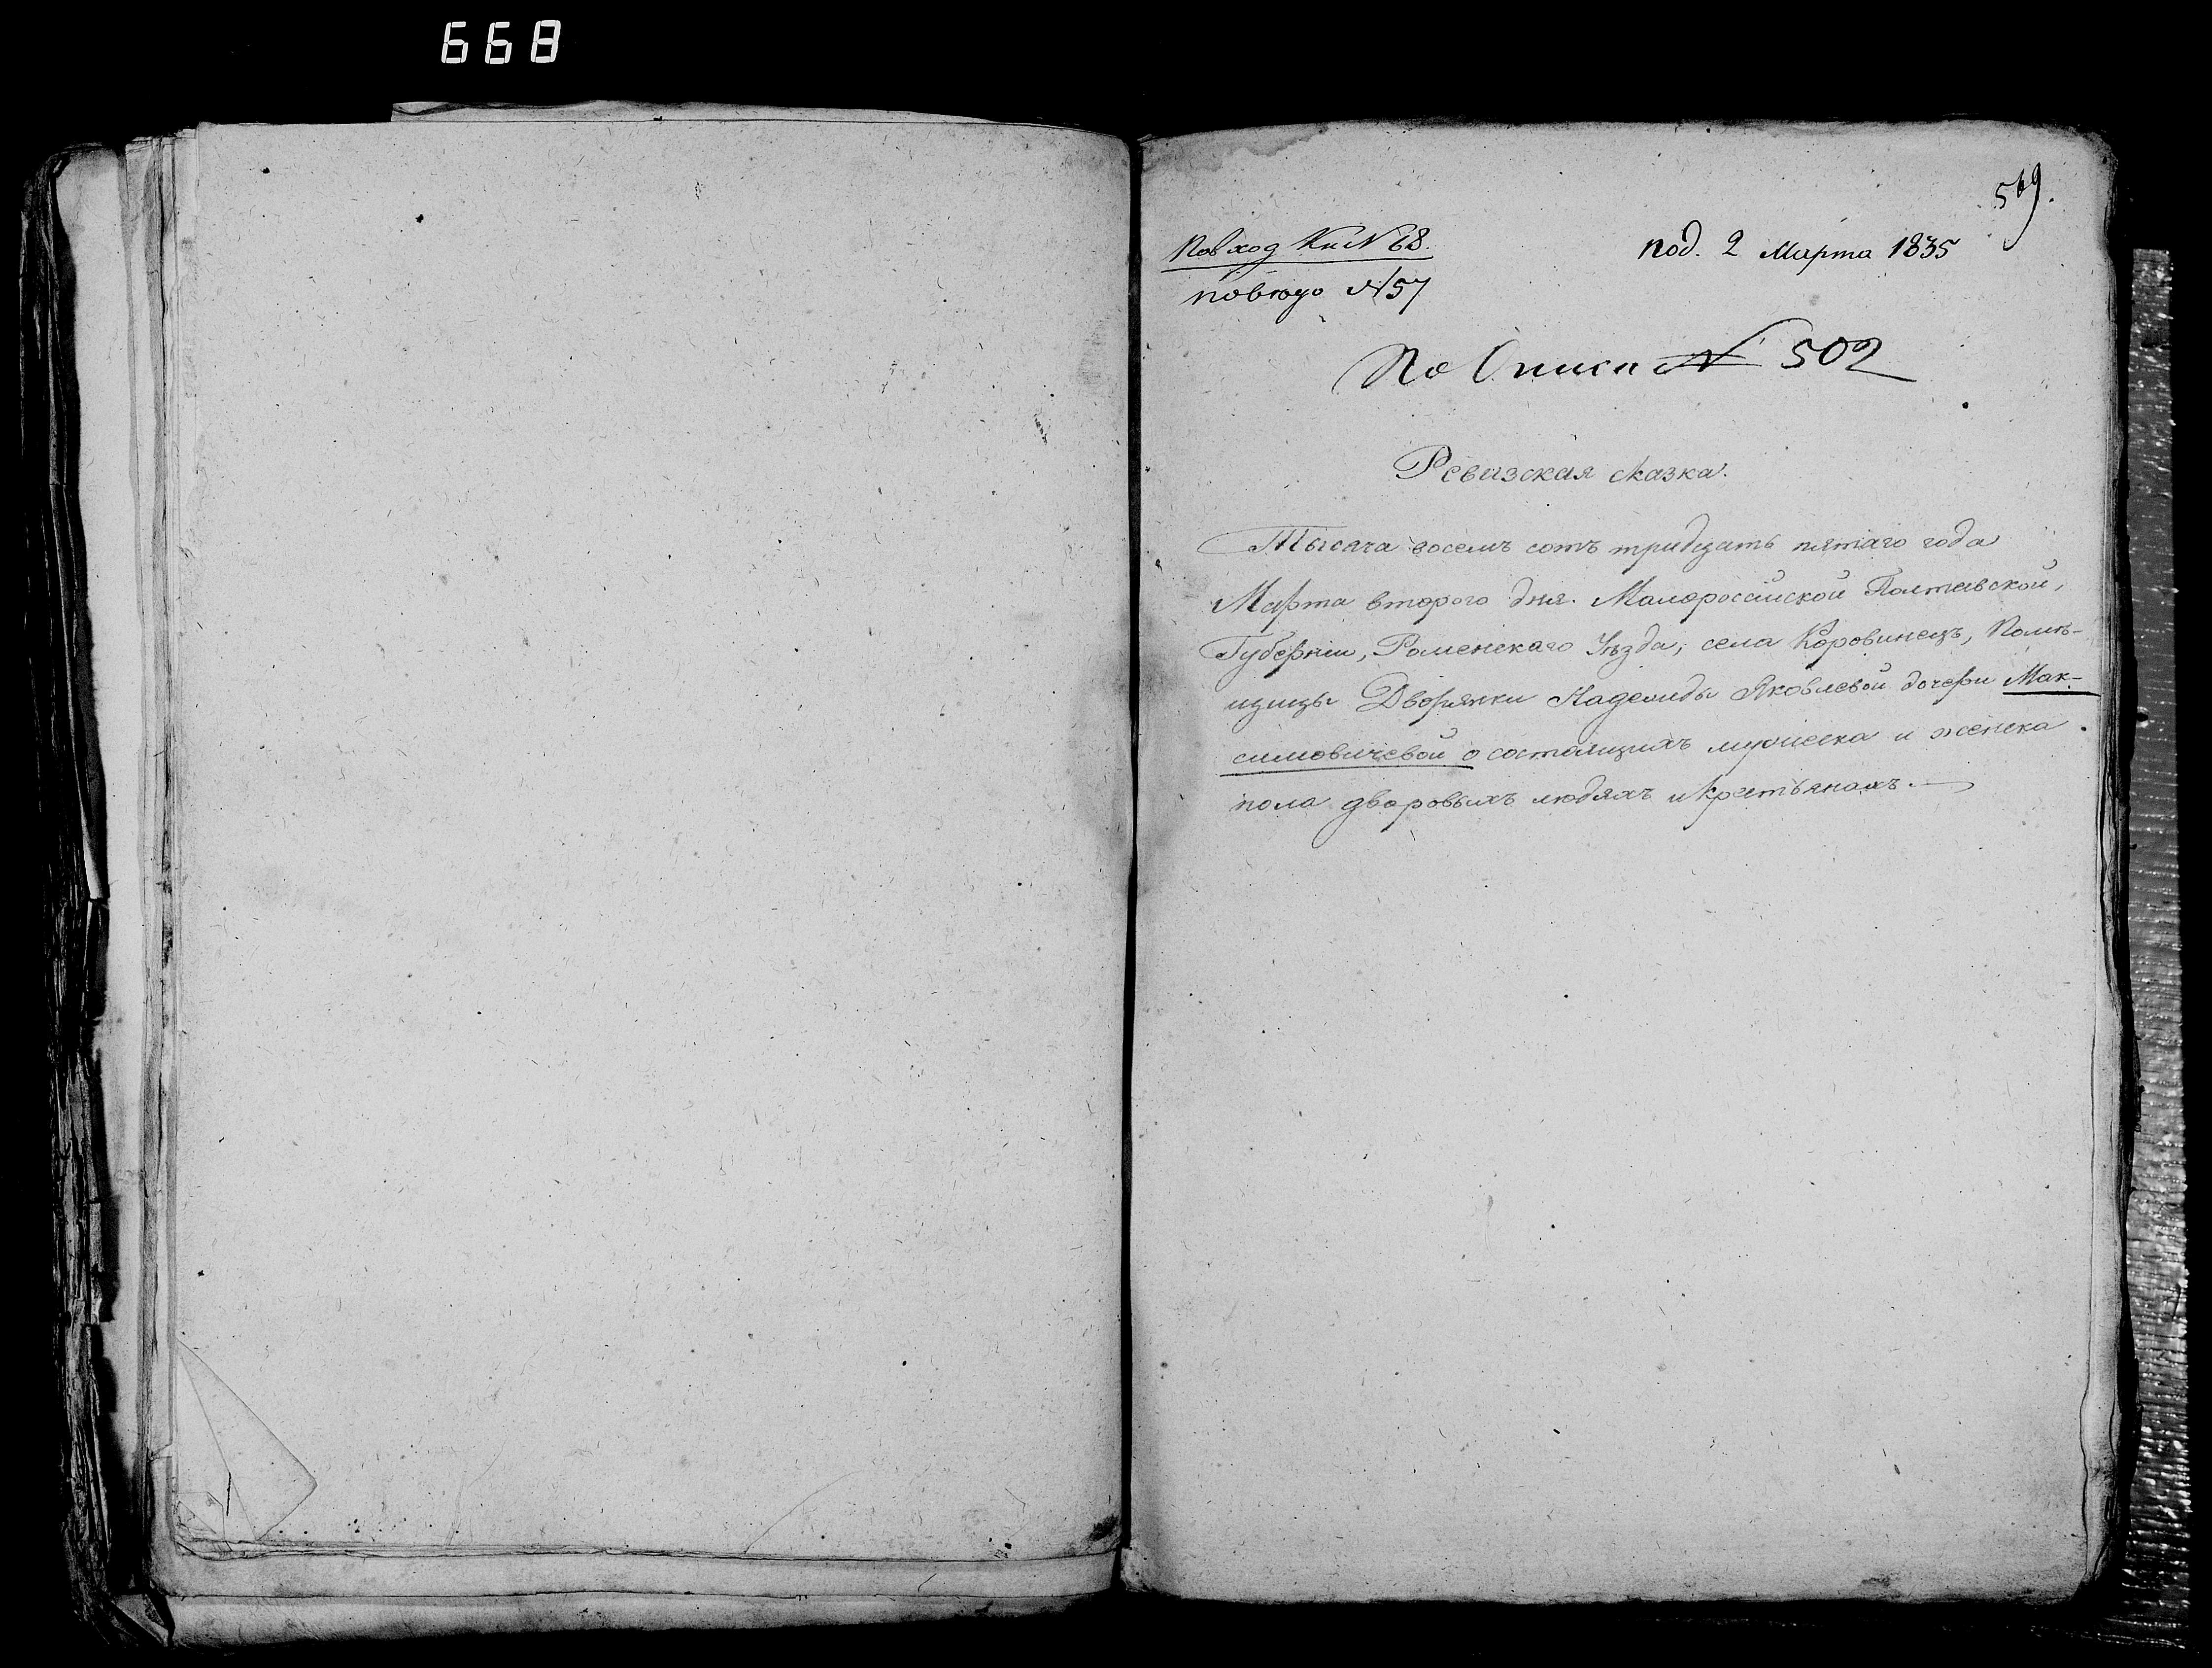 668
569.
Пов ход Кн №68.
под. 2 Марта 1835
№57
По Описи № 502
Ревизская сказка.
Тысяча восемь сотъ тридцать пятаго года
Марта второго дня. Малоросiйской Полтавской,
Губернiи, Роменскаго Уѣзда, села Коровинецъ, Помѣ-
щицы Дворянки Надежды Яковлевой дочери Мак-
симовичевой о состоящихъ мужеска и женска
пола дворовыхъ людяхъ и крестьянахъ.—